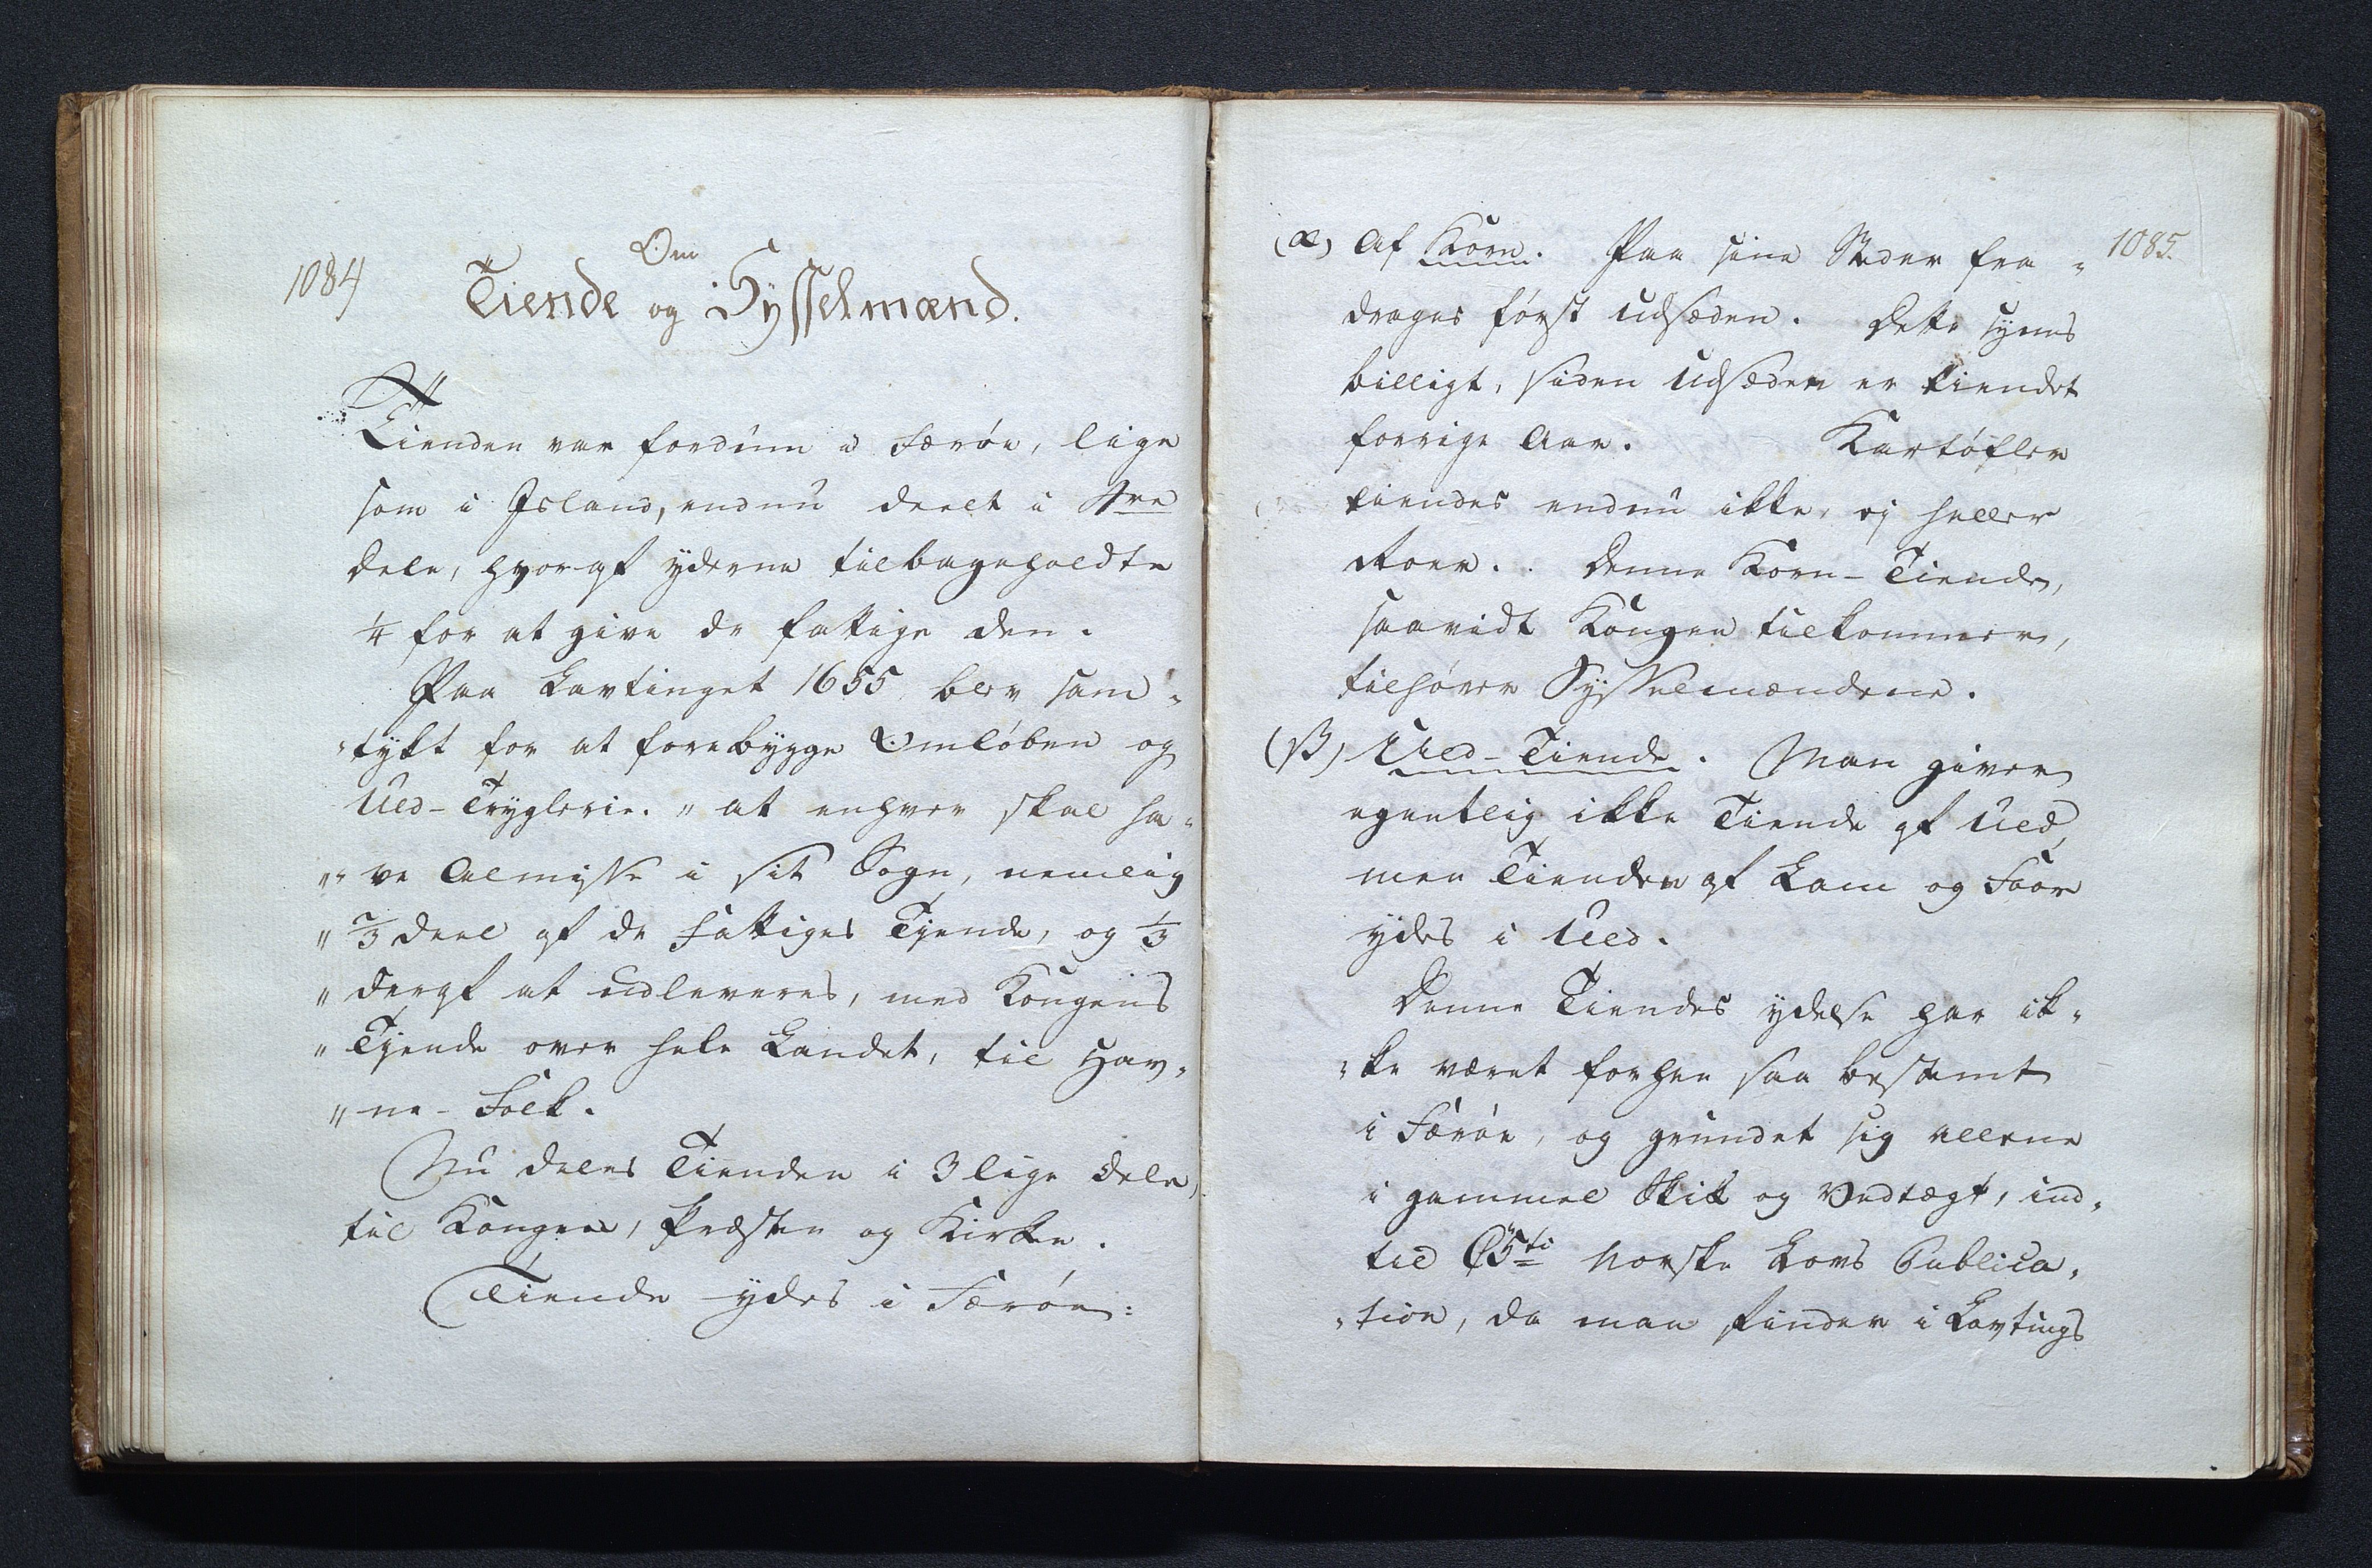 1084
Om
Tiende og Sysselmænd.
Tienden var fordum i Færöe, lige
som i Island, endnu deelt i 4re
Dele, hvoraf yderne tilbageholdte
1/4 for at give de fattige den.
Paa Lavtinget 1655 blev sam„
„tykt for at forebygge Omlöben og
Uld-Tryglerie. „ at enhver skal ha„
„„ ve Almisse i sit Sogn, nemlig
„ 2/3 Deel af de Fattiges Tjende, og 1/3
„ deraf at udleveres, med Kongens
„ Tjende over hele Landet, til Hav„
„ ne-Folk.
Nu deles Tienden i 3 lige Dele,
til Kongen, Præsten og Kirken.
Tiende ydes i Færöe:
1085.
(α) Af Korn. Paa sine Steder fra„
drages först Udsæden. Dette synes
billigt, siden Udsæden er tiendet
forrige Aar. Kartöfler
tiendes endnu ikke, ej heller
Roer. Denne Korn-Tiende,
saavidt Kongen tilkommer,
tilhörer Sysselmændene.
(β) Uld-Tiende. Man giver
egentlig ikke Tiende af Uld,
men Tienden af Lam og Faar
ydes i Uld.
Denne Tiendes ydelse har ik„
„ke været forhen saa bestemt
i Færöe, og grundet sig allene
i gammel Skik og Vedtægt, ind„
til C5ti Norske Lovs Publica„
„tion, da man finder i Lavtings